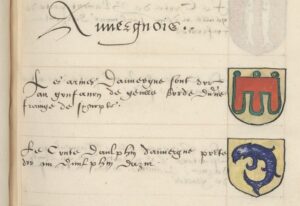 Auvergnois.
Les armes dauvergne sont dor
au gonfanon de gueulles borde dune
frange de synople
Le Conte daulphin dauvergne porte
dor au daulphin dazur